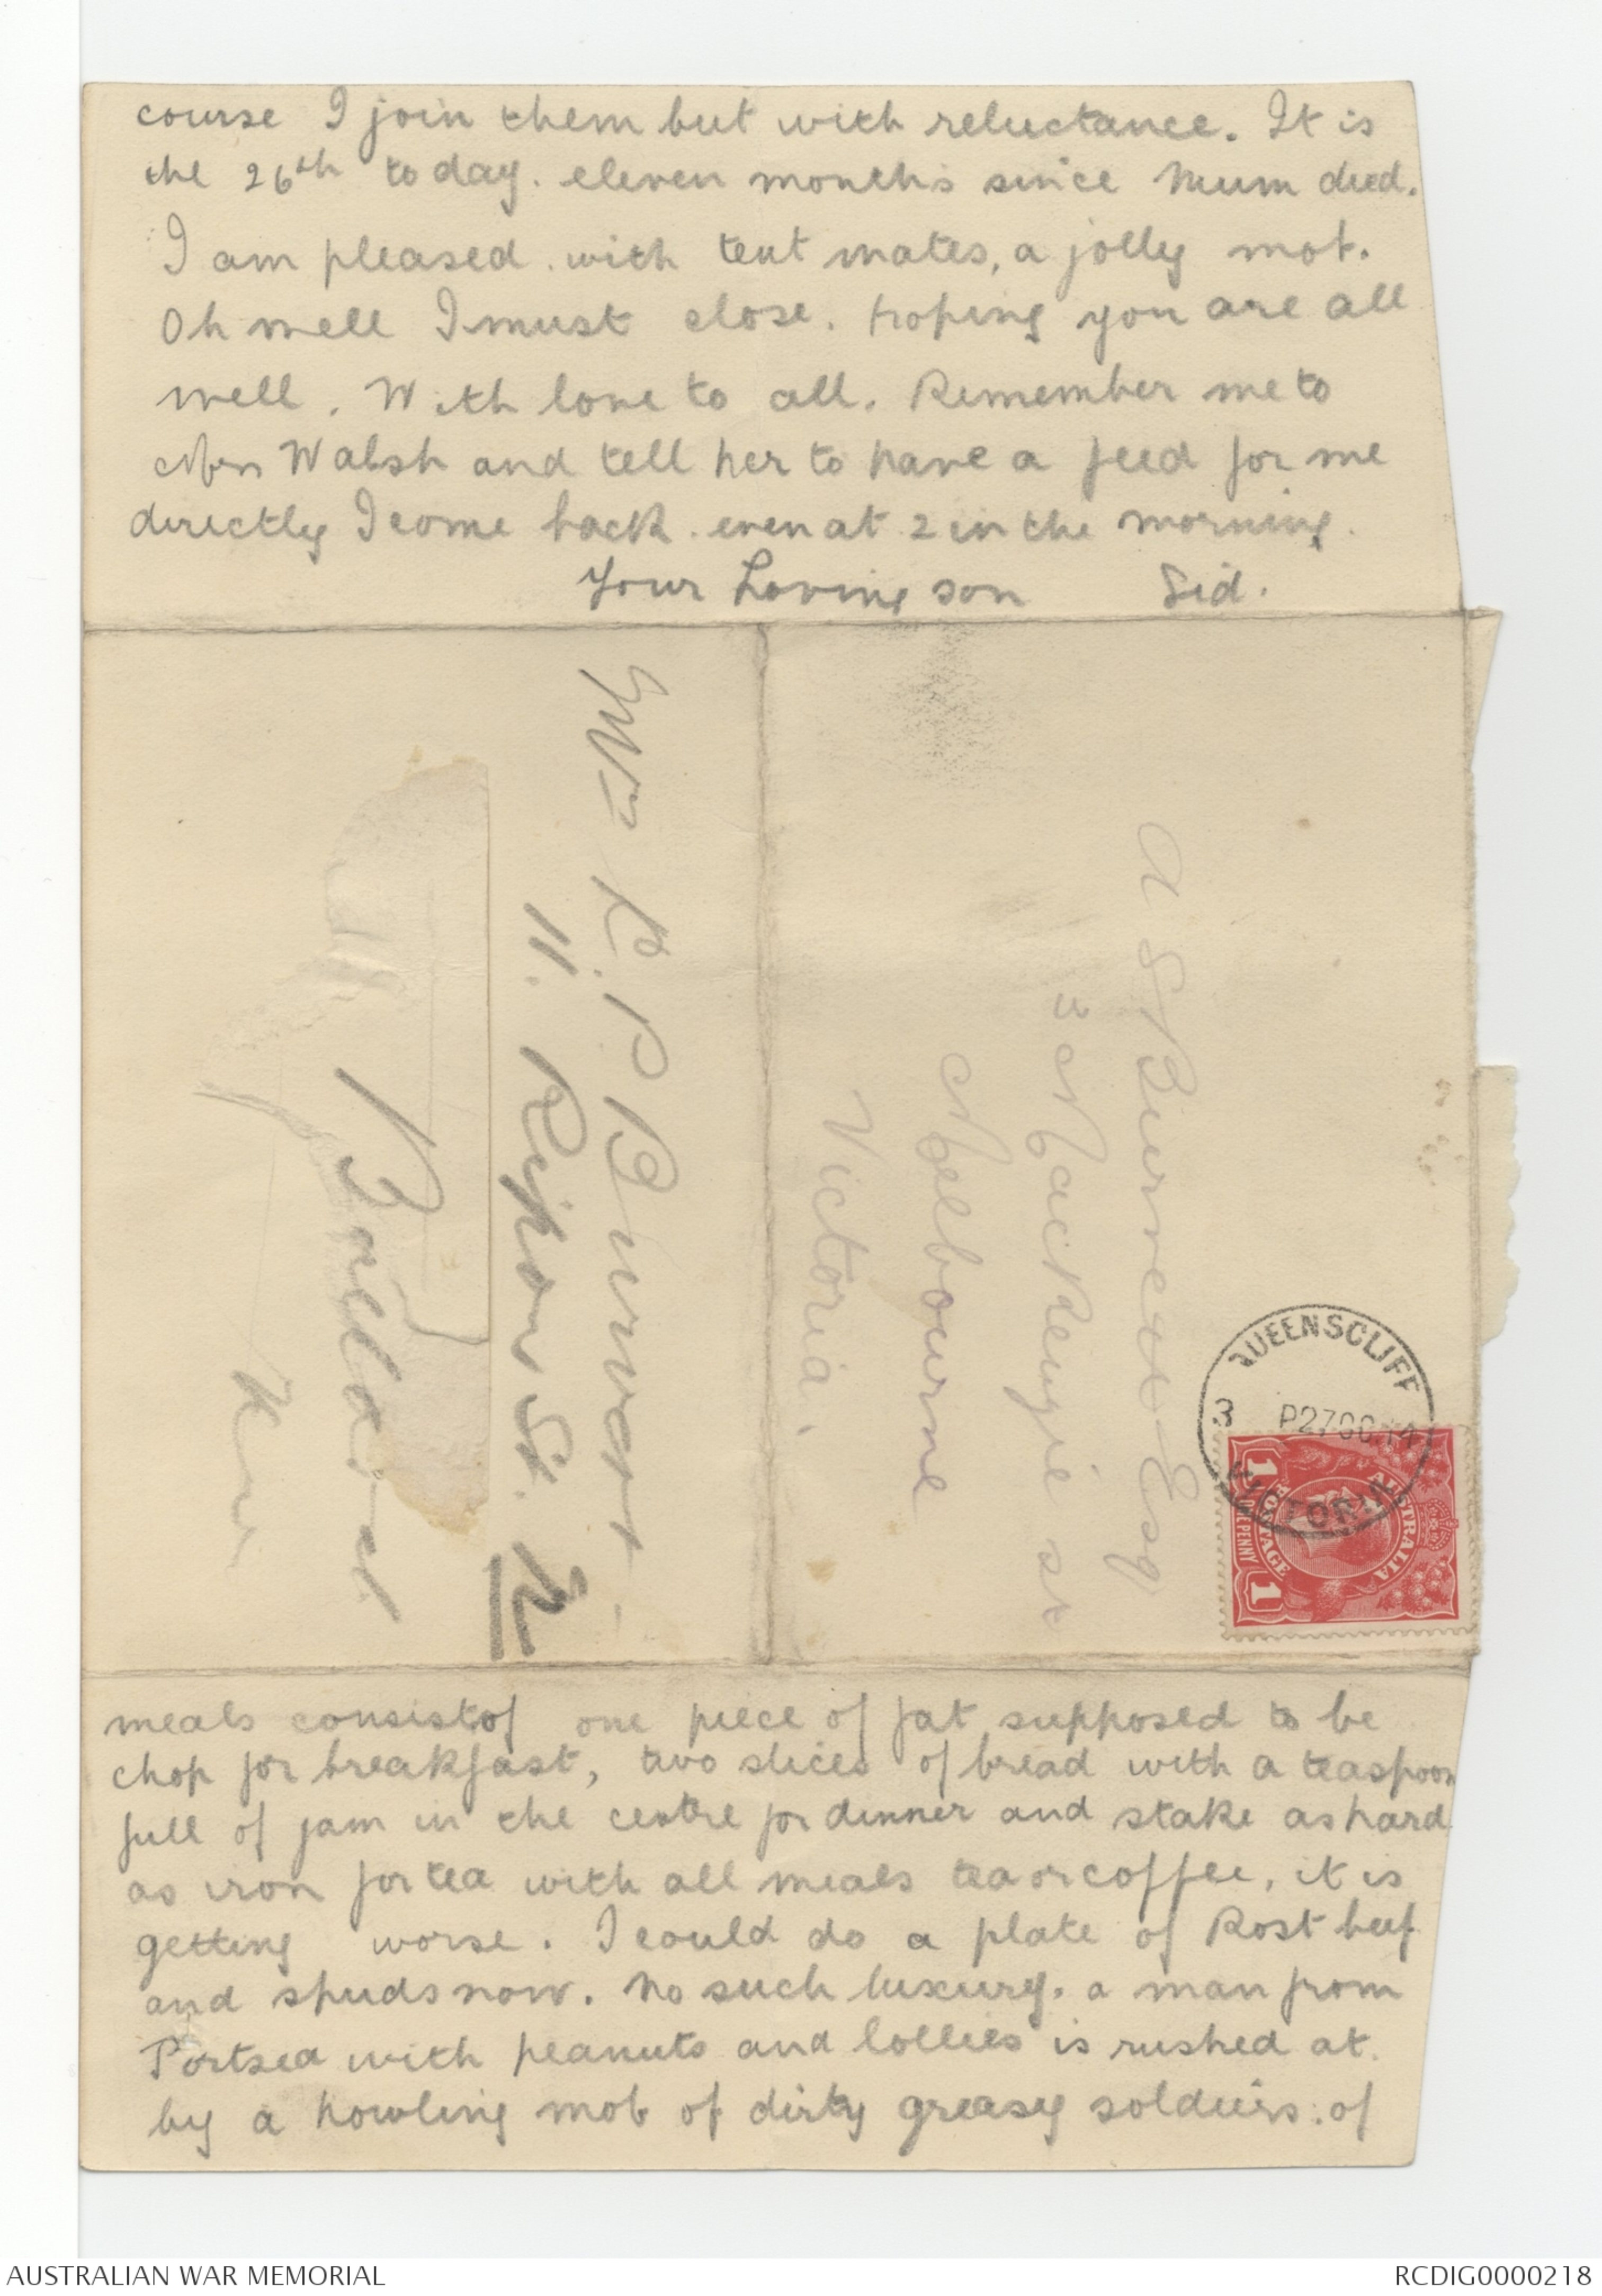 course I join them but with reluctance. It is
the 26th today. eleven months since Mum died.
I am pleased. with tent mates, a jolly mob.
Oh well I must close. hoping you are all
well. With love to all. Remember me to
Mrs Walsh and tell her to have a feed for me
directly I come back. even at 2 in the morning.
Your Loving son Sid.
R. P. Burnett
11. Ripon St.
A S Burnett Esq
3 MacKenzie st
Melbourne
Victoria.
QUEENSCLIFF
3 P 27 OC 14
VICTORIA
AUSTRALIA
POSTAGE
ONE PENNY
1 1
meals consist of one piece of fat supposed to be
chop for breakfast, two slices of bread with a teaspoon
full of jam in the centre for dinner and stake as hard
as iron for tea with all meals tea or coffee, it is
getting worse. I could do a plate of Rost beef
and spuds now. No such luxury. a man from
Portsea with peanuts and lollies is rushed at.
by a howling mob of dirty greasy soldiers. of
AUSTRALIAN WAR MEMORIAL
RCDIG0000218